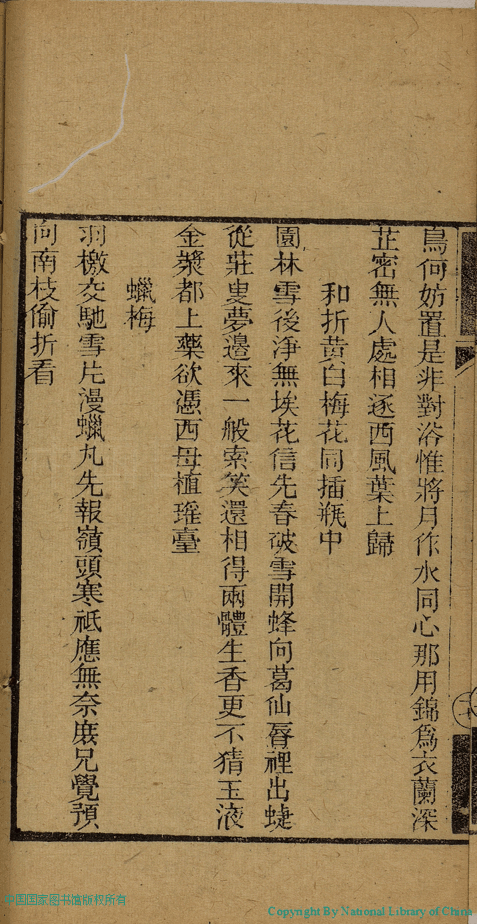 鳥何妨置是非對浴惟將月作水同心那用錦爲衣蘭深
芷密無人處相逐西風葉上歸
和折黃白梅花同插瓶中
園林雪後淨無埃花信先春破雪開蜂向葛仙脣裡出蜨
從莊叟夢邉來一般索笑還相得兩體生香更不猜玉液
金漿都上藥欲憑西母植瑤臺
蠟梅
羽檄交馳雪片漫蠟丸先報嶺頭寒祗應無奈庻兄覺預
向南枝偷折看
中国国家图书馆版权所有
Copyright By National Library of China